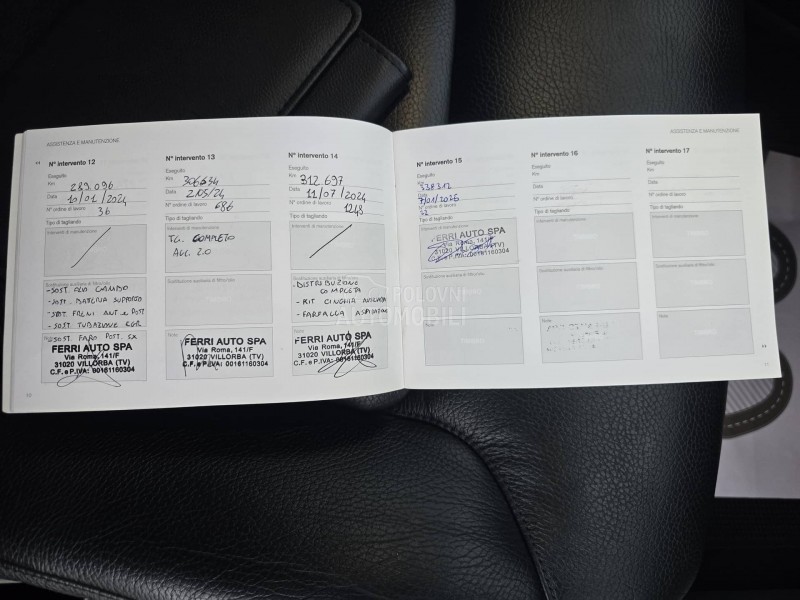 ASSISTENZA E MANUTENZIONE
N° intervento 12
Eseguito
Km 289.096
Data 10/01/2024
N° ordine di lavoro 36
Tipo di tagliando
Interventi di manutenzione
Sostituzione ausiliaria di filtro/olio
- SOST. OLIO CAMBIO
- SOST. BATTERIA SUPPORTO
- SOST FRENI ANT e POST
- SOST TUBAZIONE EGR
- SOST. FARO POST. SX
FERRI AUTO SPA
Via Roma, 141/F
31020 VILLORBA (TV)
C.F. e P.IVA: 00161160304
N° intervento 13
Eseguito
Km
Data 2/05/24
N° ordine di lavoro 686
Tipo di tagliando
Interventi di manutenzione
TG. COMPLETO
ALL. 2.0
Sostituzione ausiliaria di filtro/olio
Note
FERRI AUTO SPA
Via Roma, 141/F
31020 VILLORBA (TV)
C.F. e P.IVA: 00161160304
N° intervento 14
Eseguito
Km 312.697
Data 11/07/2024
N° ordine di lavoro 1248
Tipo di tagliando
Interventi di manutenzione
Sostituzione ausiliaria di filtro/olio
- DISTRIBUZIONE
COMPLETA
- KIT CINGHIA
- FARFALLA ASPIRAZIONE
Note
FERRI AUTO SPA
Via Roma, 141/F
31020 VILLORBA (TV)
C.F. e P.IVA: 00161160304
ASSISTENZA E MANUTENZIONE
N° intervento 15
Eseguito
Km 338312
Data 7/01/2025
N° ordine di lavoro 32
Tipo di tagliando
Interventi di manutenzione
FERRI AUTO SPA
Via Roma, 141/F
31020 VILLORBA (TV)
C.F. e P.IVA: 00161160304
Sostituzione ausiliaria di filtro/olio
Note
N° intervento 16
Eseguito
Km
Data
N° ordine di lavoro
Tipo di tagliando
Interventi di manutenzione
Sostituzione ausiliaria di filtro/olio
Note
N° intervento 17
Eseguito
Km
Data
N° ordine di lavoro
Tipo di tagliando
Interventi di manutenzione
Sostituzione ausiliaria di filtro/olio
Note
POLOVNI
AUTOMOBILI